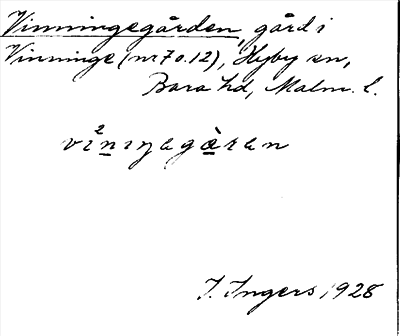 Vinningegården, gård i
Vinninge (nr 7 o. 12), Hyby sn,
Bara hd, Malm. l.
vi²n̲iŋagɑ̲̀ran
I. Ingers 1928